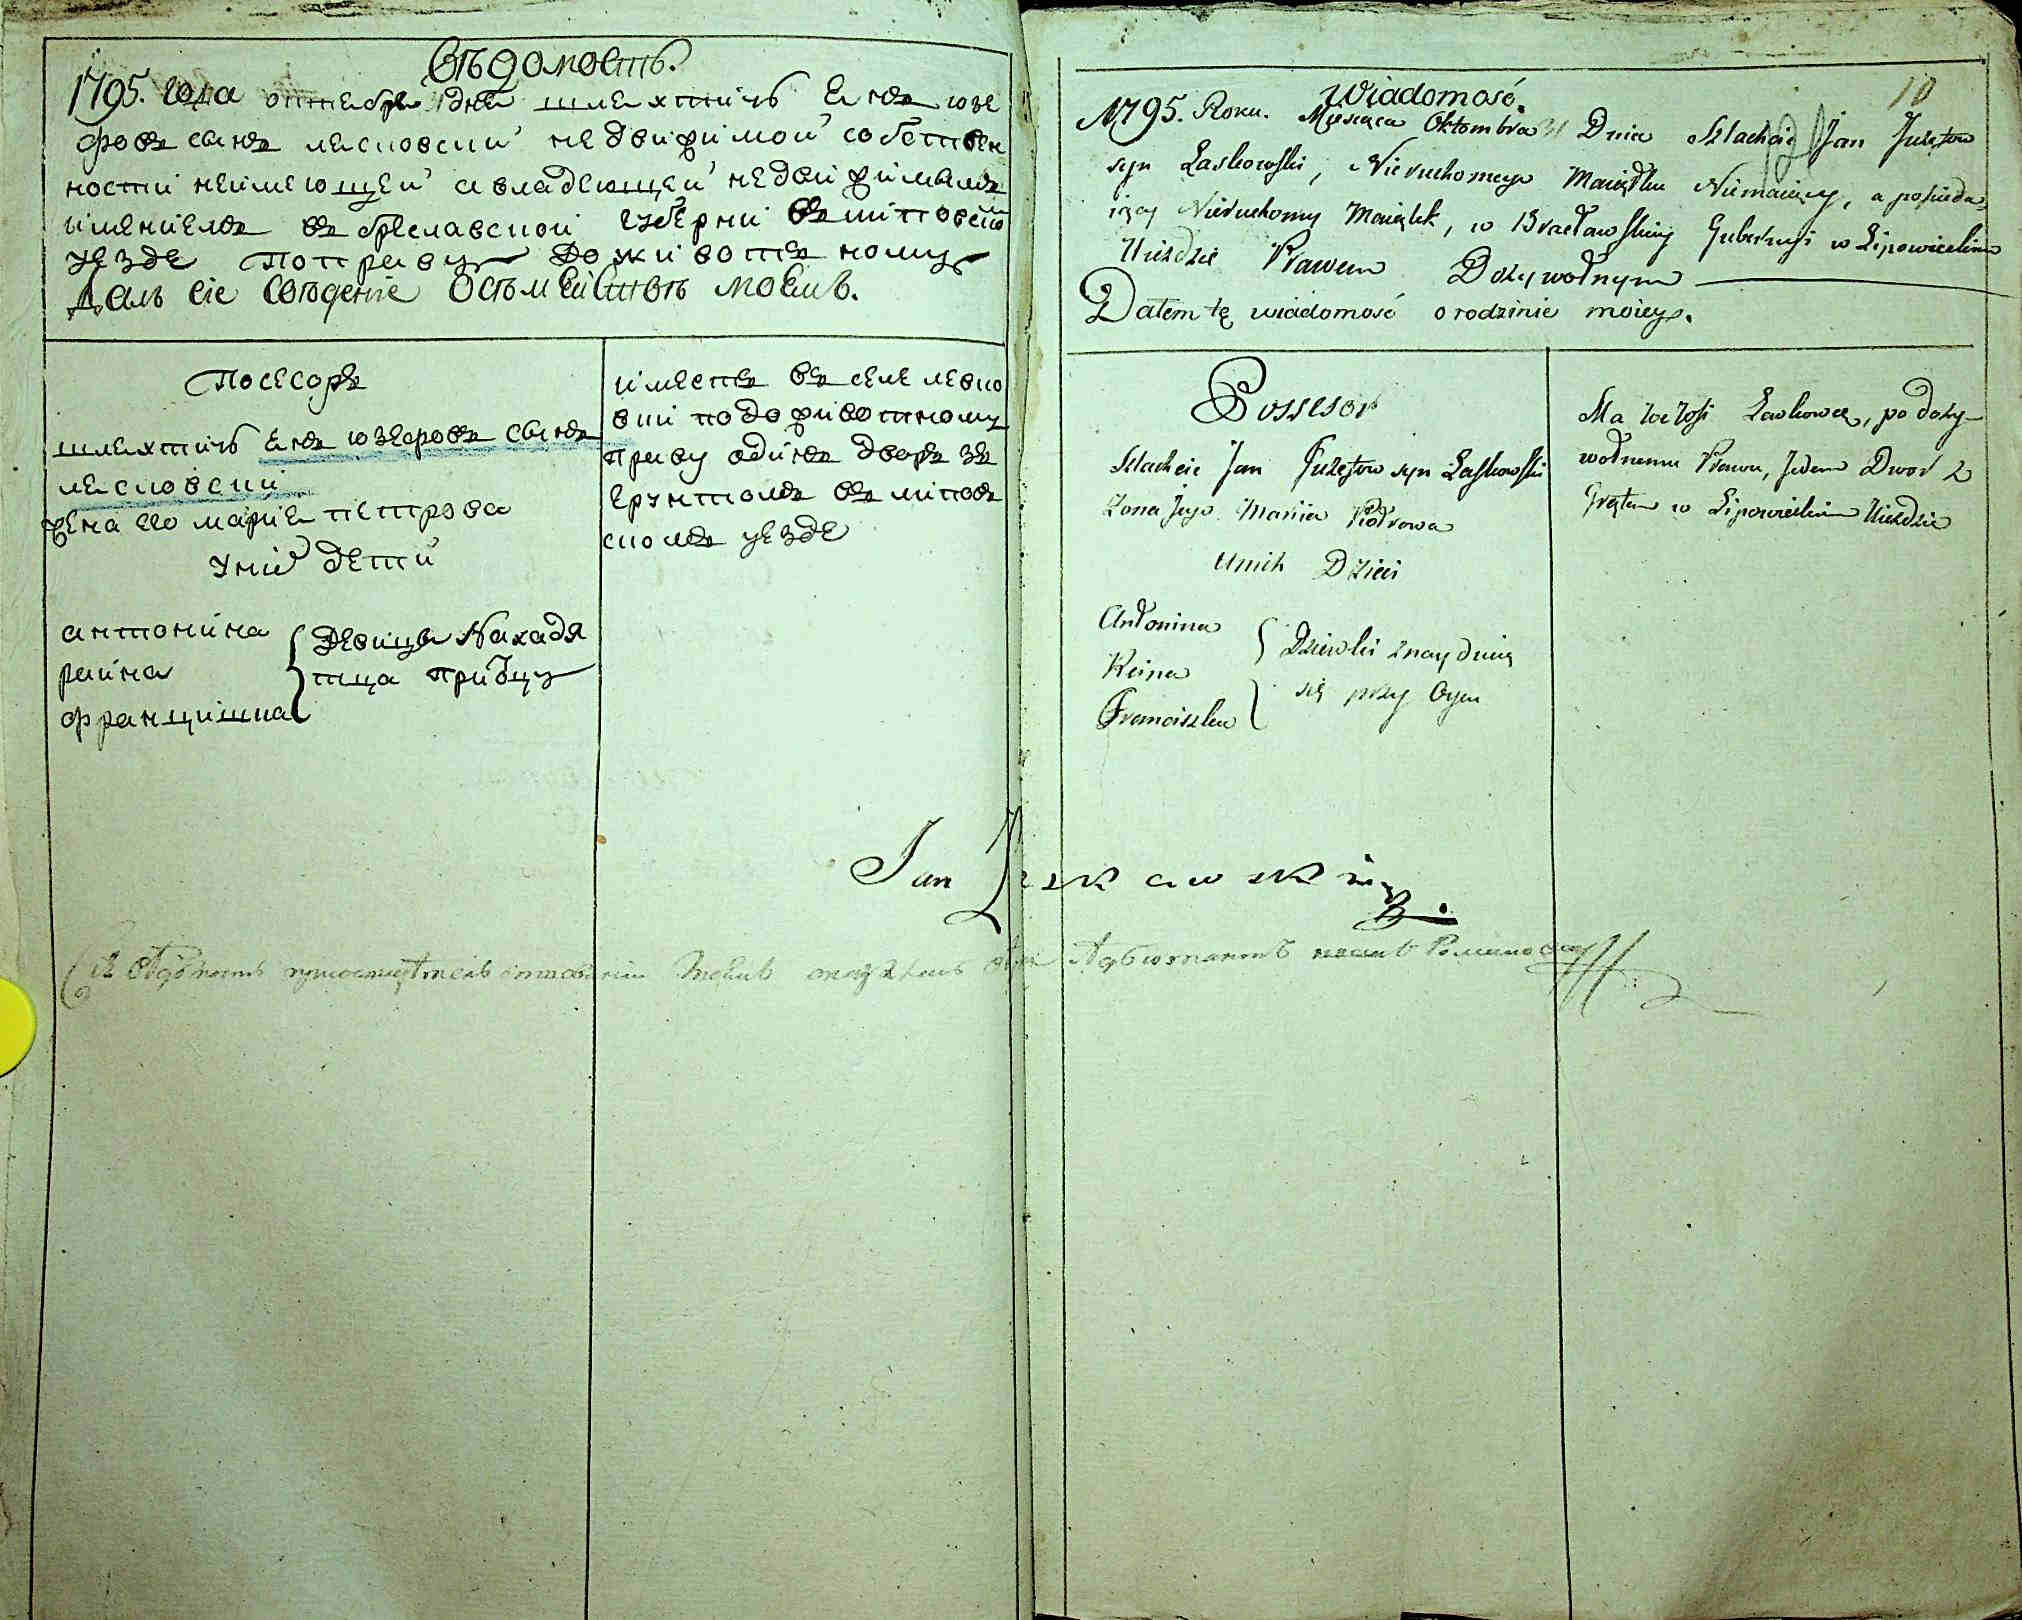 Вѣдомость.
1795. года октебря 31 дня шляхтичъ янъ юзе
фовъ сынъ лясковскии недвижимои собствен
ности неимеющеи авладеющеи недвижимымъ
имениемъ въ бреславскои губерни въ липовско
уезде поправу доживотъ ному
Далъ сіе Свѣденіе Осѣмействѣ моемъ.
Посесоръ
шляхтичъ янъ юзефовъ сынъ
лясковскии
жена его мария петрова
унихъ дети
антонина
раина
францишка
девицы Находя
тца приотцу
имеетъ въ селе левко
вки подоживотному
праву одинъ дворъ зъ
грунтомъ въ липов
скомъ уезде
10
Wiadomość.
1795. Roku. Miesiąca Oktombra 31 Dnia Szlachcic Jan Juzefow
syn Laskowski, Nieruchomego Maiątku Niemaiący, a posiada
iący Nieruchomy Maiątek, w Bracławskiey Gubernji w Lipowieckim
Uieździe Prawem Dożywotnym
Dałem tę wiadomość o rodzinie moiey.
Possesor
Szlachcic Jan Juzefow syn Laskowski
Żona Jego Maria Piotrowa
Unich Dzieci
Antonina
Reina
Franciszka
Dziewki znayduią
się przy Oycu
Ma we Wsi Lewkowce, po doży
wotnemu Prawu, Jeden Dwor z
Grątem w Lipowieckim Uieździe
Jan Laskawski